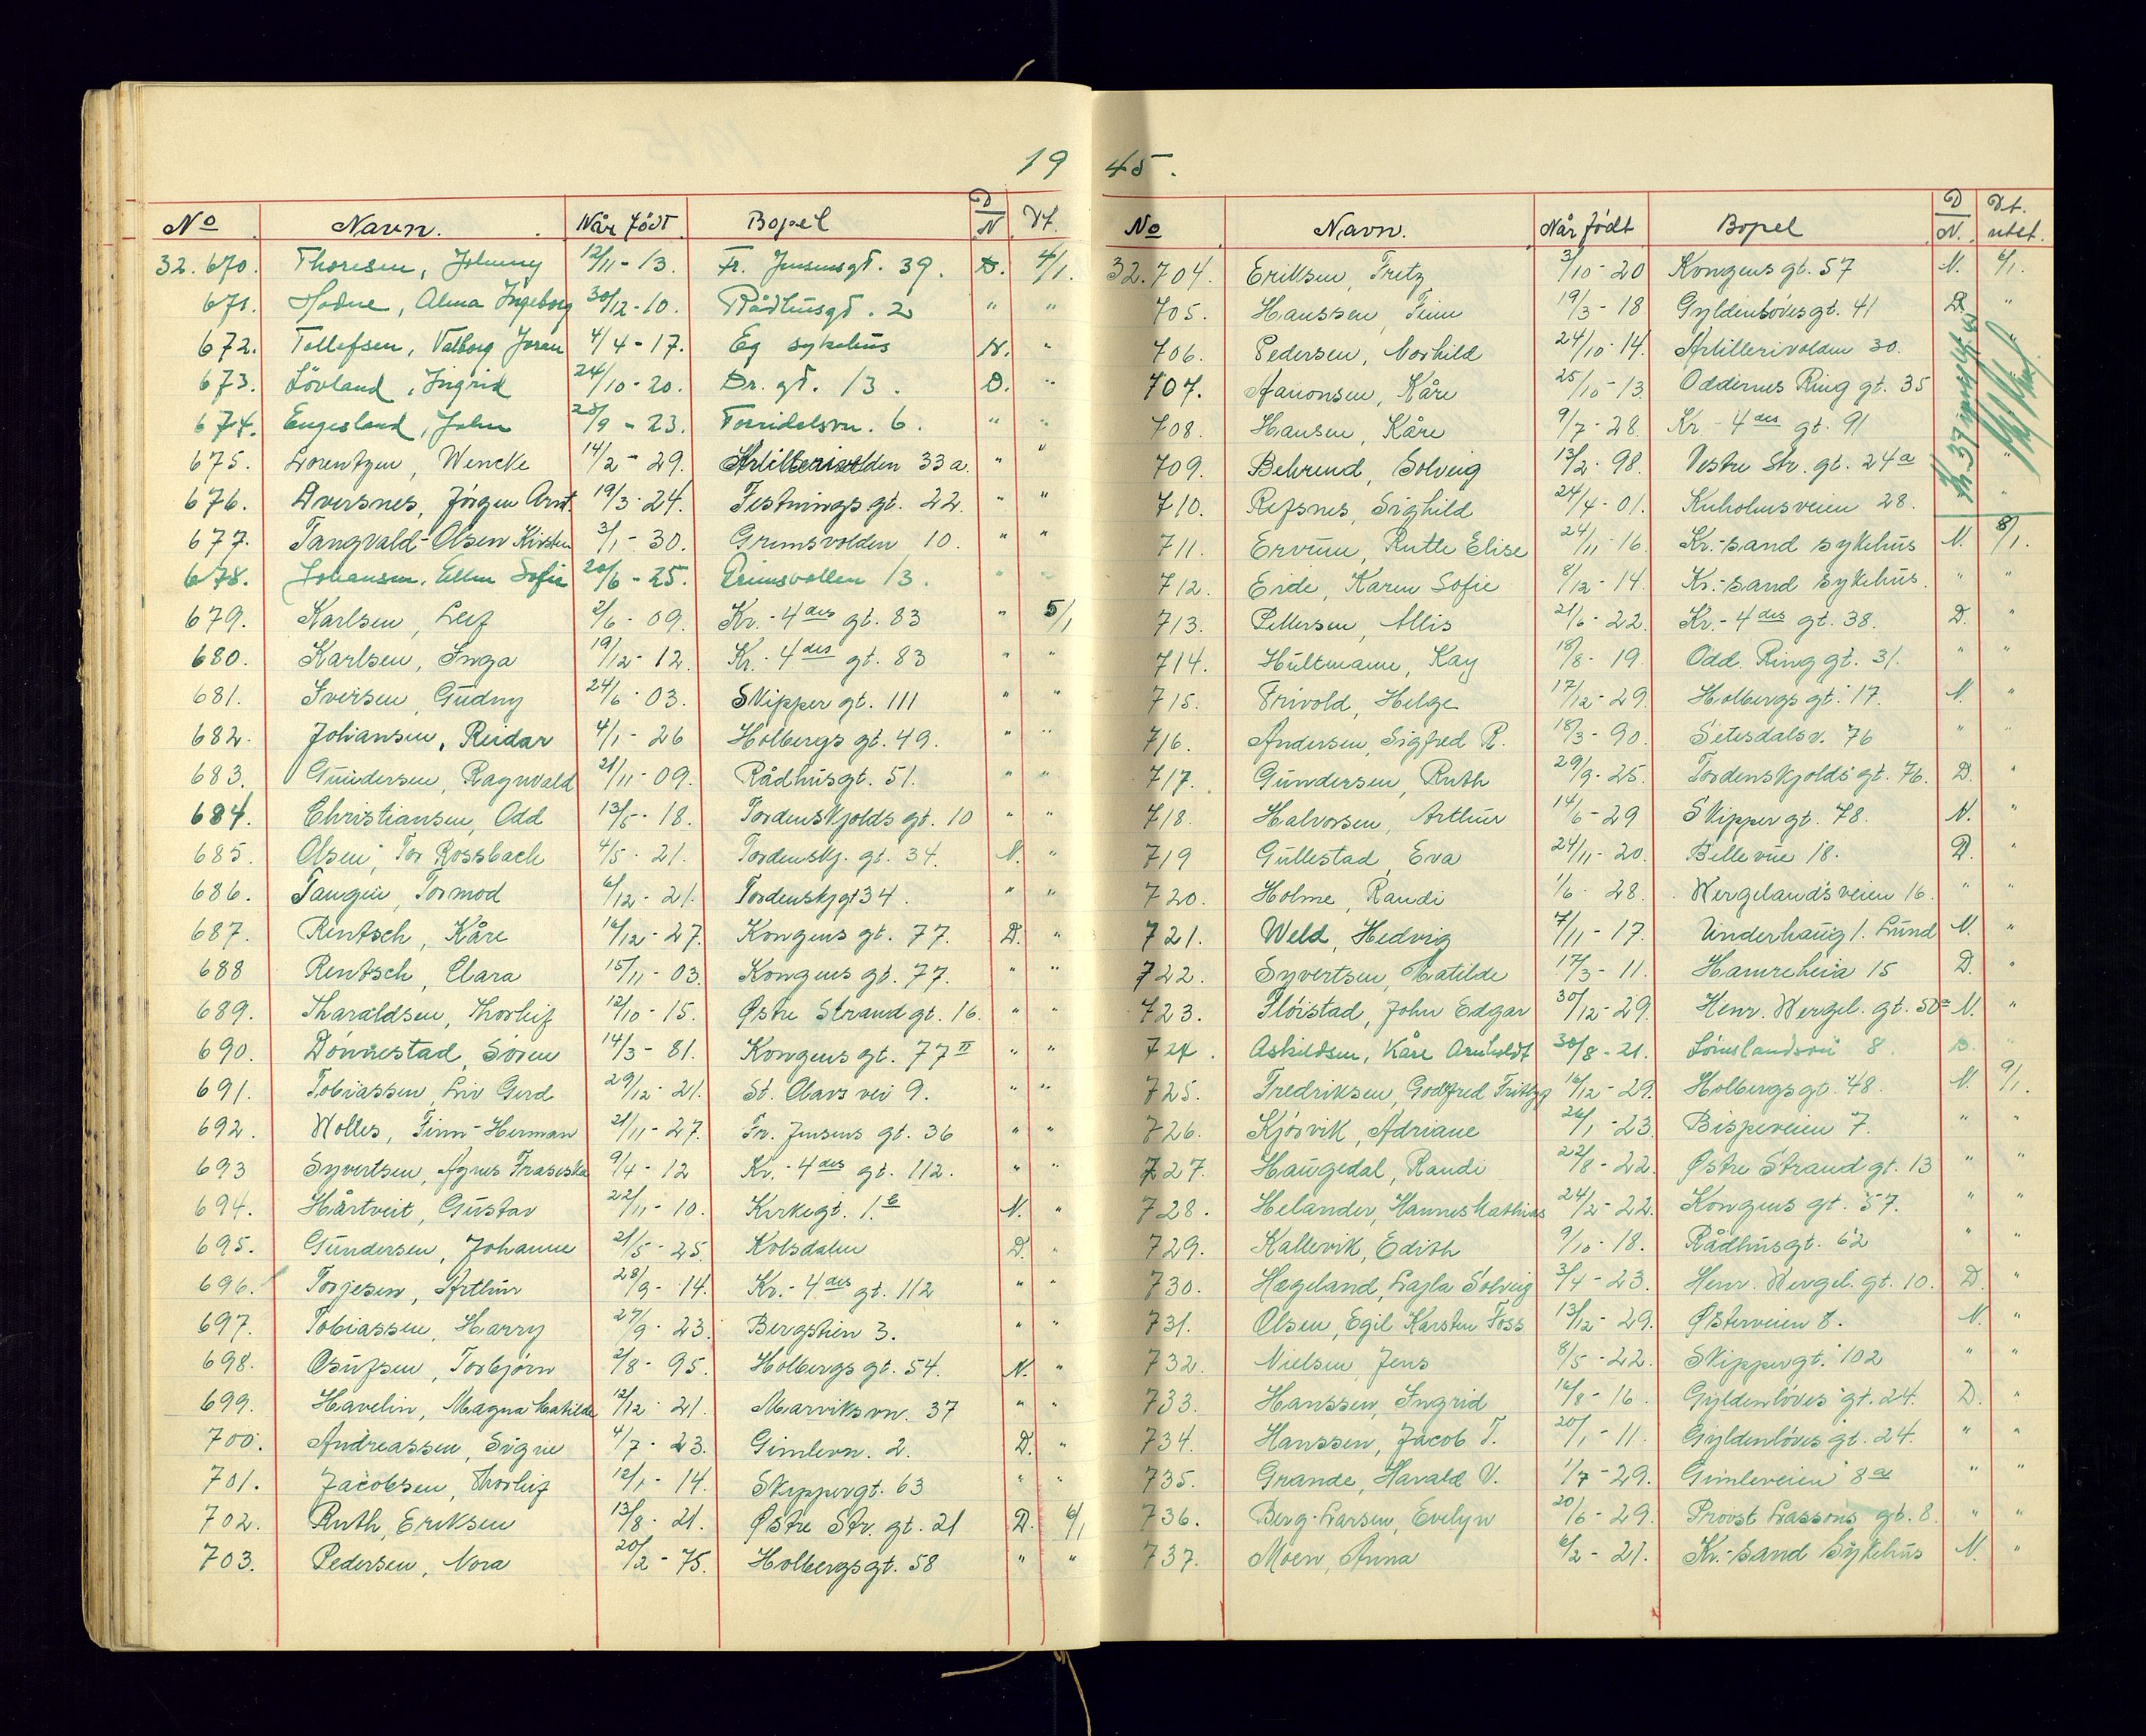 19 45.
No Navn. Når født. Bopel D/N Dt.
32.670. Thoresen, Johnny 12/11-13. Fr. Jensensgt. 39. D. 4/1.
671. Hodne, Alma Ingeborg 30/12-10. Rådhusgt. 2 " "
672. Tellefsen, Valborg 4/4-17. Eg sykehus N. "
673. Lövland, Ingrid 24/10-20. Dr. gt. 13. D. "
674. Engesland, John 28/9-23. Torridalsvn. 6. " "
675. Lorentzen, Wencke 14/2-29. Artillerivolden 33a. " "
676. Dversnes, Jörgen Arnt. 19/3-24. Festningsgt. 22. " "
677. Tangvald-Olsen Kirsten 3/1-30. Grimsvolden 10. " "
678. Johansen, Ellen Sofie 20/6-25. Grimsvollen 13. " "
679. Karlsen, Leif 2/6-09. Kr.-4des gt. 83 " 5/1
680. Karlsen, Inga 19/12-12. Kr.-4des gt. 83 " "
681. Iversen, Gudny 24/6-03. Skippergt. 111 " "
682. Johansen, Reidar 4/1-26 Holbergs gt. 49. " "
683. Gundersen, Ragnvald 21/11-09. Rådhusgt. 51. " "
684. Christiansen, Odd 13/5-18. Tordenskjolds gt. 10 " "
685. Olsen, Tor Rossbach 4/5-21. Tordenskj. gt. 34. N. "
686. Tangen, Tormod 6/12-21. Tordenskjgt 34. " "
687. Rentsch, Kåre 16/12-27. Kongens gt. 77. D. "
688 Rentsch, Clara 15/11-03. Kongens gt. 77. " "
689. Tharaldsen, Thorleif 12/10-15. Østre Strand gt. 16. " "
690. Dönnestad, Sören 14/3-81. Kongens gt. 77 II " "
691. Tobiassen, Liv Gerd 29/12-21. St. Olavs vei 9. " "
692. Wolles, Finn-Herman 21/11-27. Fr. Jensens gt. 36 " "
693 Syvertsen, Agnes Fraseska 9/4-12 Kr.-4des gt. 112. " "
694. Hårtveit, Gustav 22/11-10. Kirkegt. 1. N. "
695. Gundersen, Johanne 21/5-25. Kolsdalen D. "
696. Torjesen, Arthur 28/9-14. Kr.-4des gt. 112 " "
697. Tobiassen, Harry 27/9-23. Bergstien 3. " "
698. Osufsen, Torbjørn 2/8-95. Holbergs gt. 54. N. "
699. Havelin, Magna Matilde 12/12-21. Marviksvn. 37 " "
700. Andreassen, Signe 4/7-23. Gimlevn. 2. D. "
701. Jacobsen, Thorleif 12/1-14. Skippergt. 63 " "
702. Ruth, Eriksen 13/8-21. Østre Str. gt. 21 D. 6/1
703. Pedersen, Nora 20/2-75. Holbergsgt. 58 " "
No Navn. Når født Bopel D/N. Dt. utst.
32.704. Eriksen, Fretz 3/10-20 Kongens gt. 57 N. 6/1.
705. Hanssen, Finn 19/3-18 Gyldenlövesgt. 41 D. "
706. Pedersen, Norhild 24/10-14. Artillerivolden 30.
707. Aanonsen, Kåre 25/10-13. Oddernes Ring gt. 35
708. Hansen, Kåre 9/7-28. Kr.-4des gt. 91
709. Behrend, Solveig 13/2-98. Vestre Str. gt. 24a "
710. Refsnes, Sighild 24/4-01. Kuholmsveien 28. "
711. Ervum, Ruth Elise 24/11-16. Kr.-sand sykehus N. 8/1.
712. Eide, Karen Sofie 8/12-14. Kr.-sand sykehus. " "
713. Pettersen, Allis 21/6-22. Kr.-4des gt. 38. D. "
714. Hultmann, Kay 18/8-19. Odd. Ring gt. 31. " "
715. Frivold, Helge 17/12-29. Holbergs gt. 17. N. "
716. Andersen, Sigfred R. 18/3-90. Setesdalsv. 76 " "
717. Gundersen, Ruth 29/9-25. Tordenskjolds gt. 76. D. "
718. Halvorsen, Arthur 14/6-29 Skippergt. 78. N. "
719 Gullestad, Eva 24/11-20. Bellevue 18. D. "
720. Holme, Randi 1/6-28. Wergelandsveien 16. " "
721. Weld, Hedvig 7/11-17. Underhaug 1. Lund N. "
722. Syvertsen, Matilde 17/3-11. Hamreheia 15 D. "
723. Flöistad, John Edgar 30/12-29. Henr. Wergel. gt. 50a N. "
724. Askildsen, Kåre Arnholdt 30/8-21. 8. D. "
725. Fredriksen, Godtfred 16/12-29. Holbergsgt. 48. N. 9/1.
726. Kjösvik, Adriane 26/1-23. Bispeveien 7. " "
727. Haugedal, Randi 22/8-22. Østre Strand gt. 13 " "
728. Helander, Hannes Mathias 24/2-22. Kongens gt. 57. " "
729. Kallevik, Edith 9/10-18. Rådhusgt. 62 " "
730. Hægeland, Lajla Solveig 3/4-23. Henr. Wergel. gt. 10. D. "
731. Olsen, Egil Karsten Foss 13/12-29. Østerveien 8. N. "
732. Nielsen, Jens 8/5-22. Skippergt. 102 " "
733. Hanssen, Ingrid 16/8-16. Gyldenlöves gt. 24. D. "
734. Hanssen, Jacob T. 20/1-11. Gyldenlöves gt. 24. " "
735. Grande, Harald V. 1/7-29. Gimleveien 8a " "
736. Berg-Larsen, Evelyn 20/6-29. Provst Lassons gt. 8. " "
737. Moen, Anna 6/2-21. Kr.-sand Sykehus N. "